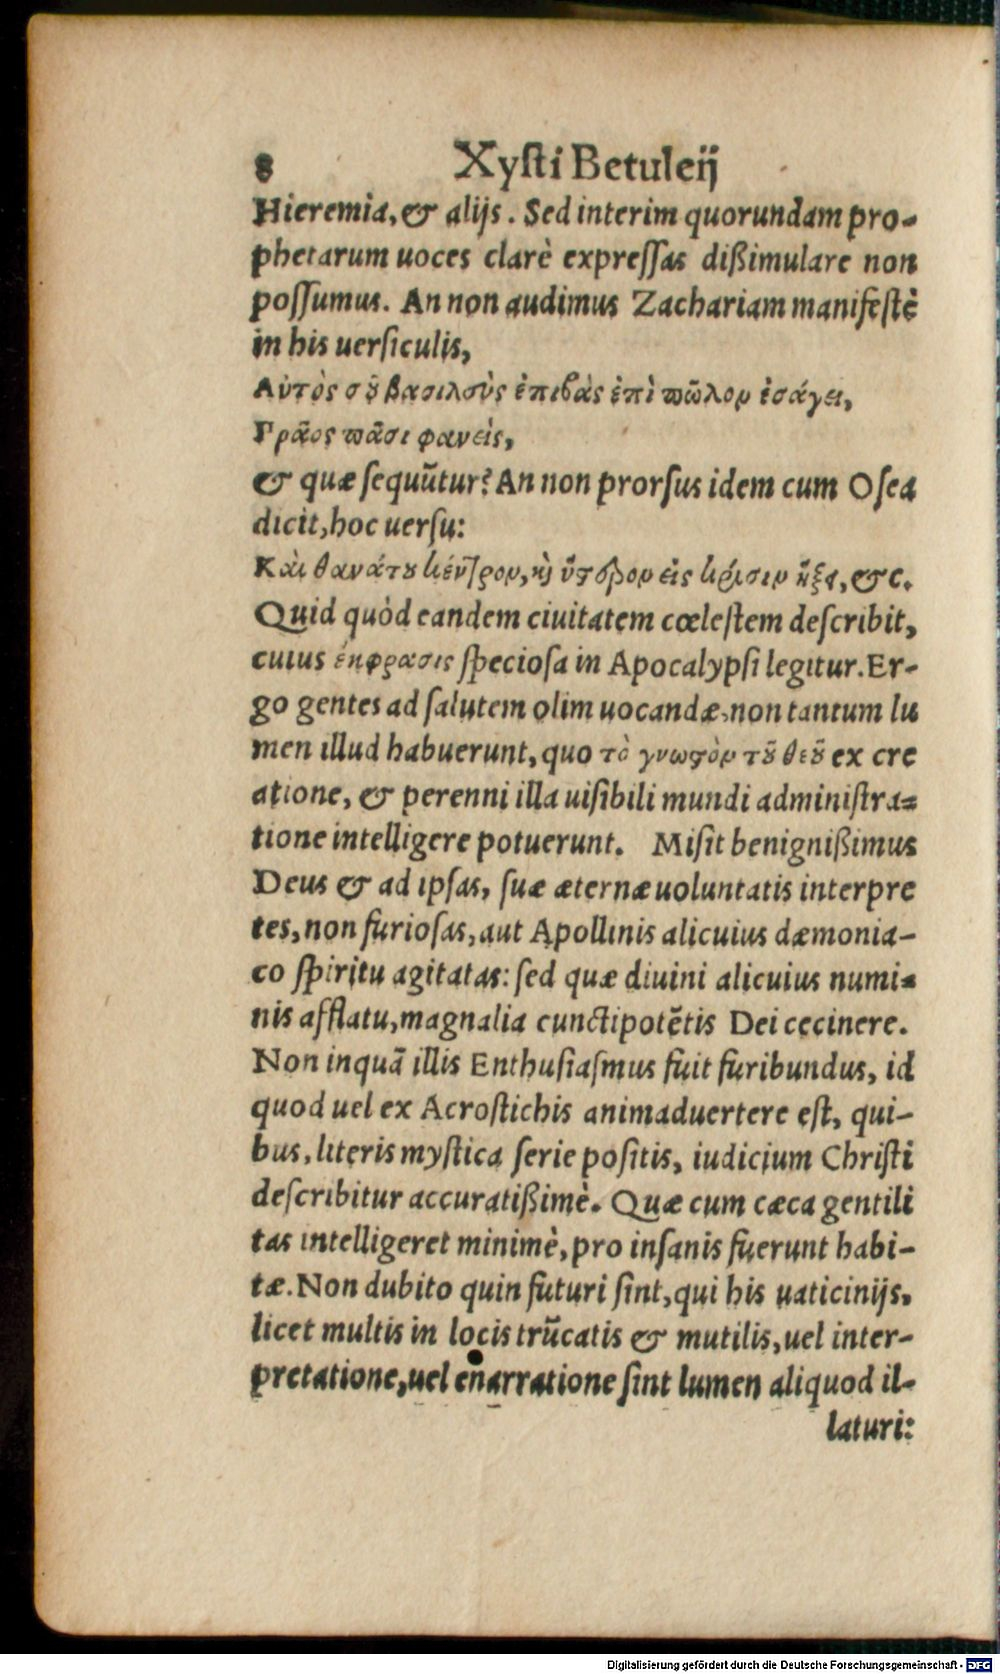 8 Xysti Betuleij
Hieremia, & alijs. Sed interim quorundam pro-
phetarum uoces clarè expressas dißimulare non
possumus. An non audimus Zachariam manifestè
in his uersiculis,
Αὐτὸς σοῦ βασιλεὺς ἐπιβὰς ἐπὶ πῶλον ἐσάγει,
Πρᾶος πᾶσι φανεὶς,
& quæ sequũtur? An non prorsus idem cum Osea
dicit, hoc uersu:
Καὶ θανάτου κέντρον, καὶ ὕστερον εἰς κρίσιν ἥξει, &c.
Quid quòd eandem ciuitatem cœlestem describit,
cuius ἔκφρασις speciosa in Apocalypsi legitur. Er-
go gentes ad salutem olim uocandæ, non tantum lu
men illud habuerunt, quo τὸ γνωστὸν τοῦ θεοῦ ex cre
atione, & perenni illa uisibili mundi administra-
tione intelligere potuerunt. Misit benignißimus
Deus & ad ipsas, suæ æternæ uoluntatis interpre
tes, non furiosas, aut Apollinis alicuius dæmonia-
co spiritu agitatas: sed quæ diuini alicuius numi-
nis afflatu, magnalia cunctipotẽtis Dei cecinere.
Non inquã illis Enthusiasmus fuit furibundus, id
quod uel ex Acrostichis animaduertere est, qui-
bus, literis mystica serie positis, iudicium Christi
describitur accuratißimè. Quæ cum cæca gentili
tas intelligeret minimè, pro insanis fuerunt habi-
tæ. Non dubito quin futuri sint, qui his uaticinijs,
licet multis in locis trũcatis & mutilis, uel inter-
pretatione, uel enarratione sint lumen aliquod il-
laturi:
Digitalisierung gefördert durch die Deutsche Forschungsgemeinschaft - DFG